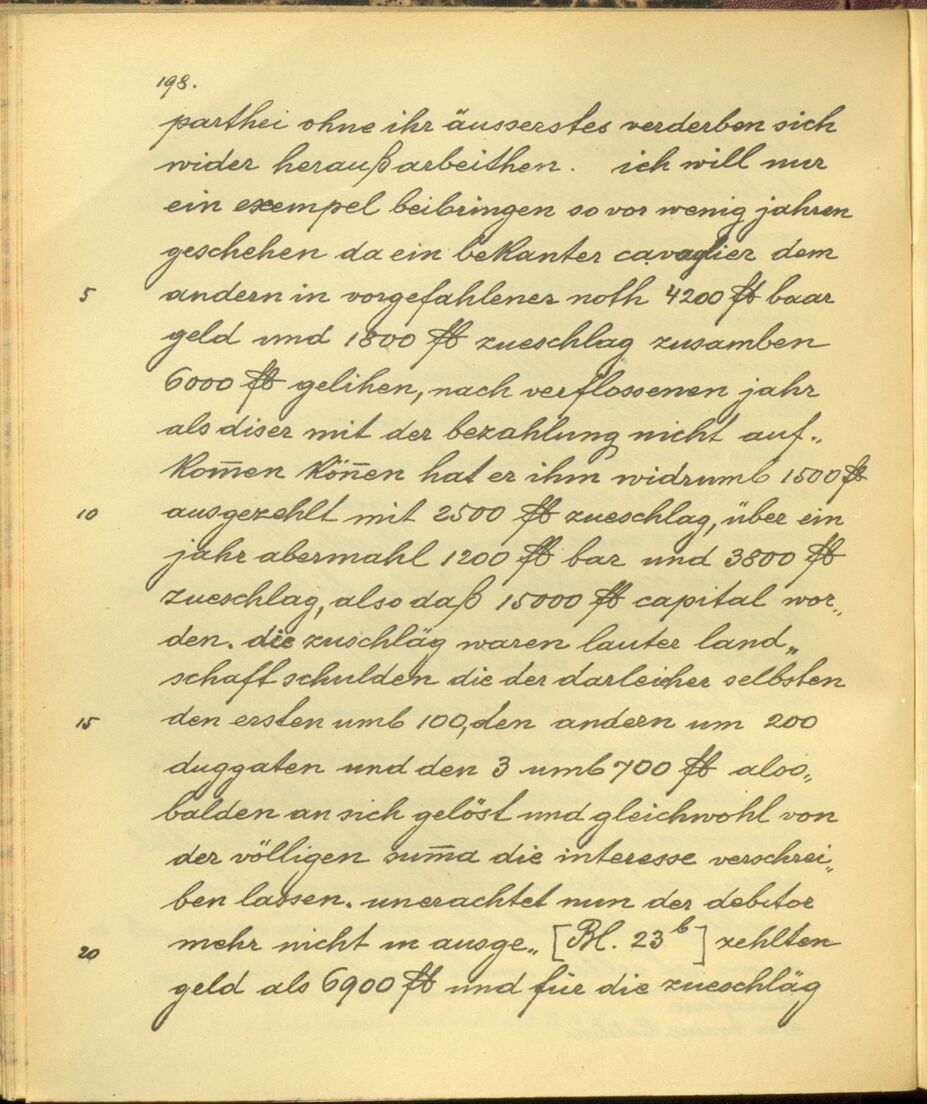 198.
parthei ohne ihr äusserstes verderben sich
wider heraußarbeithen. ich will nur
ein exempel beibringen so vor wenig jahren
geschehen da ein bekanter cavaglier dem
5 andern in vorgefahlener noth 4200 ft baar
geld und 1800 ft zueschlag zusamben
6000 ft gelihen, nach verflossenen jahr
als diser mit der bezahlung nicht auf„
kom̄en kön̄en hat er ihm widrumb 1500 ft
10 ausgezehlt mit 2500 ft zueschlag, über ein
jahr abermahl 1200 ft bar und 3800 ft
zueschlag, also daß 15000 ft capital wor„
den. die zuschläg waren lauter land„
schaft schulden die der darleicher selbsten
15 den ersten umb 100, den andern um 200
duggaten und den 3 umb 700 ft also„
balden an sich gelöst und gleichwohl von
der völligen sum̄a die interesse verschrei„
ben lassen. unerachtet nun der debitor
20 mehr nicht in ausge„ [Bl. 23ᵇ] zehlten
geld als 6900 ft und für die zueschläg